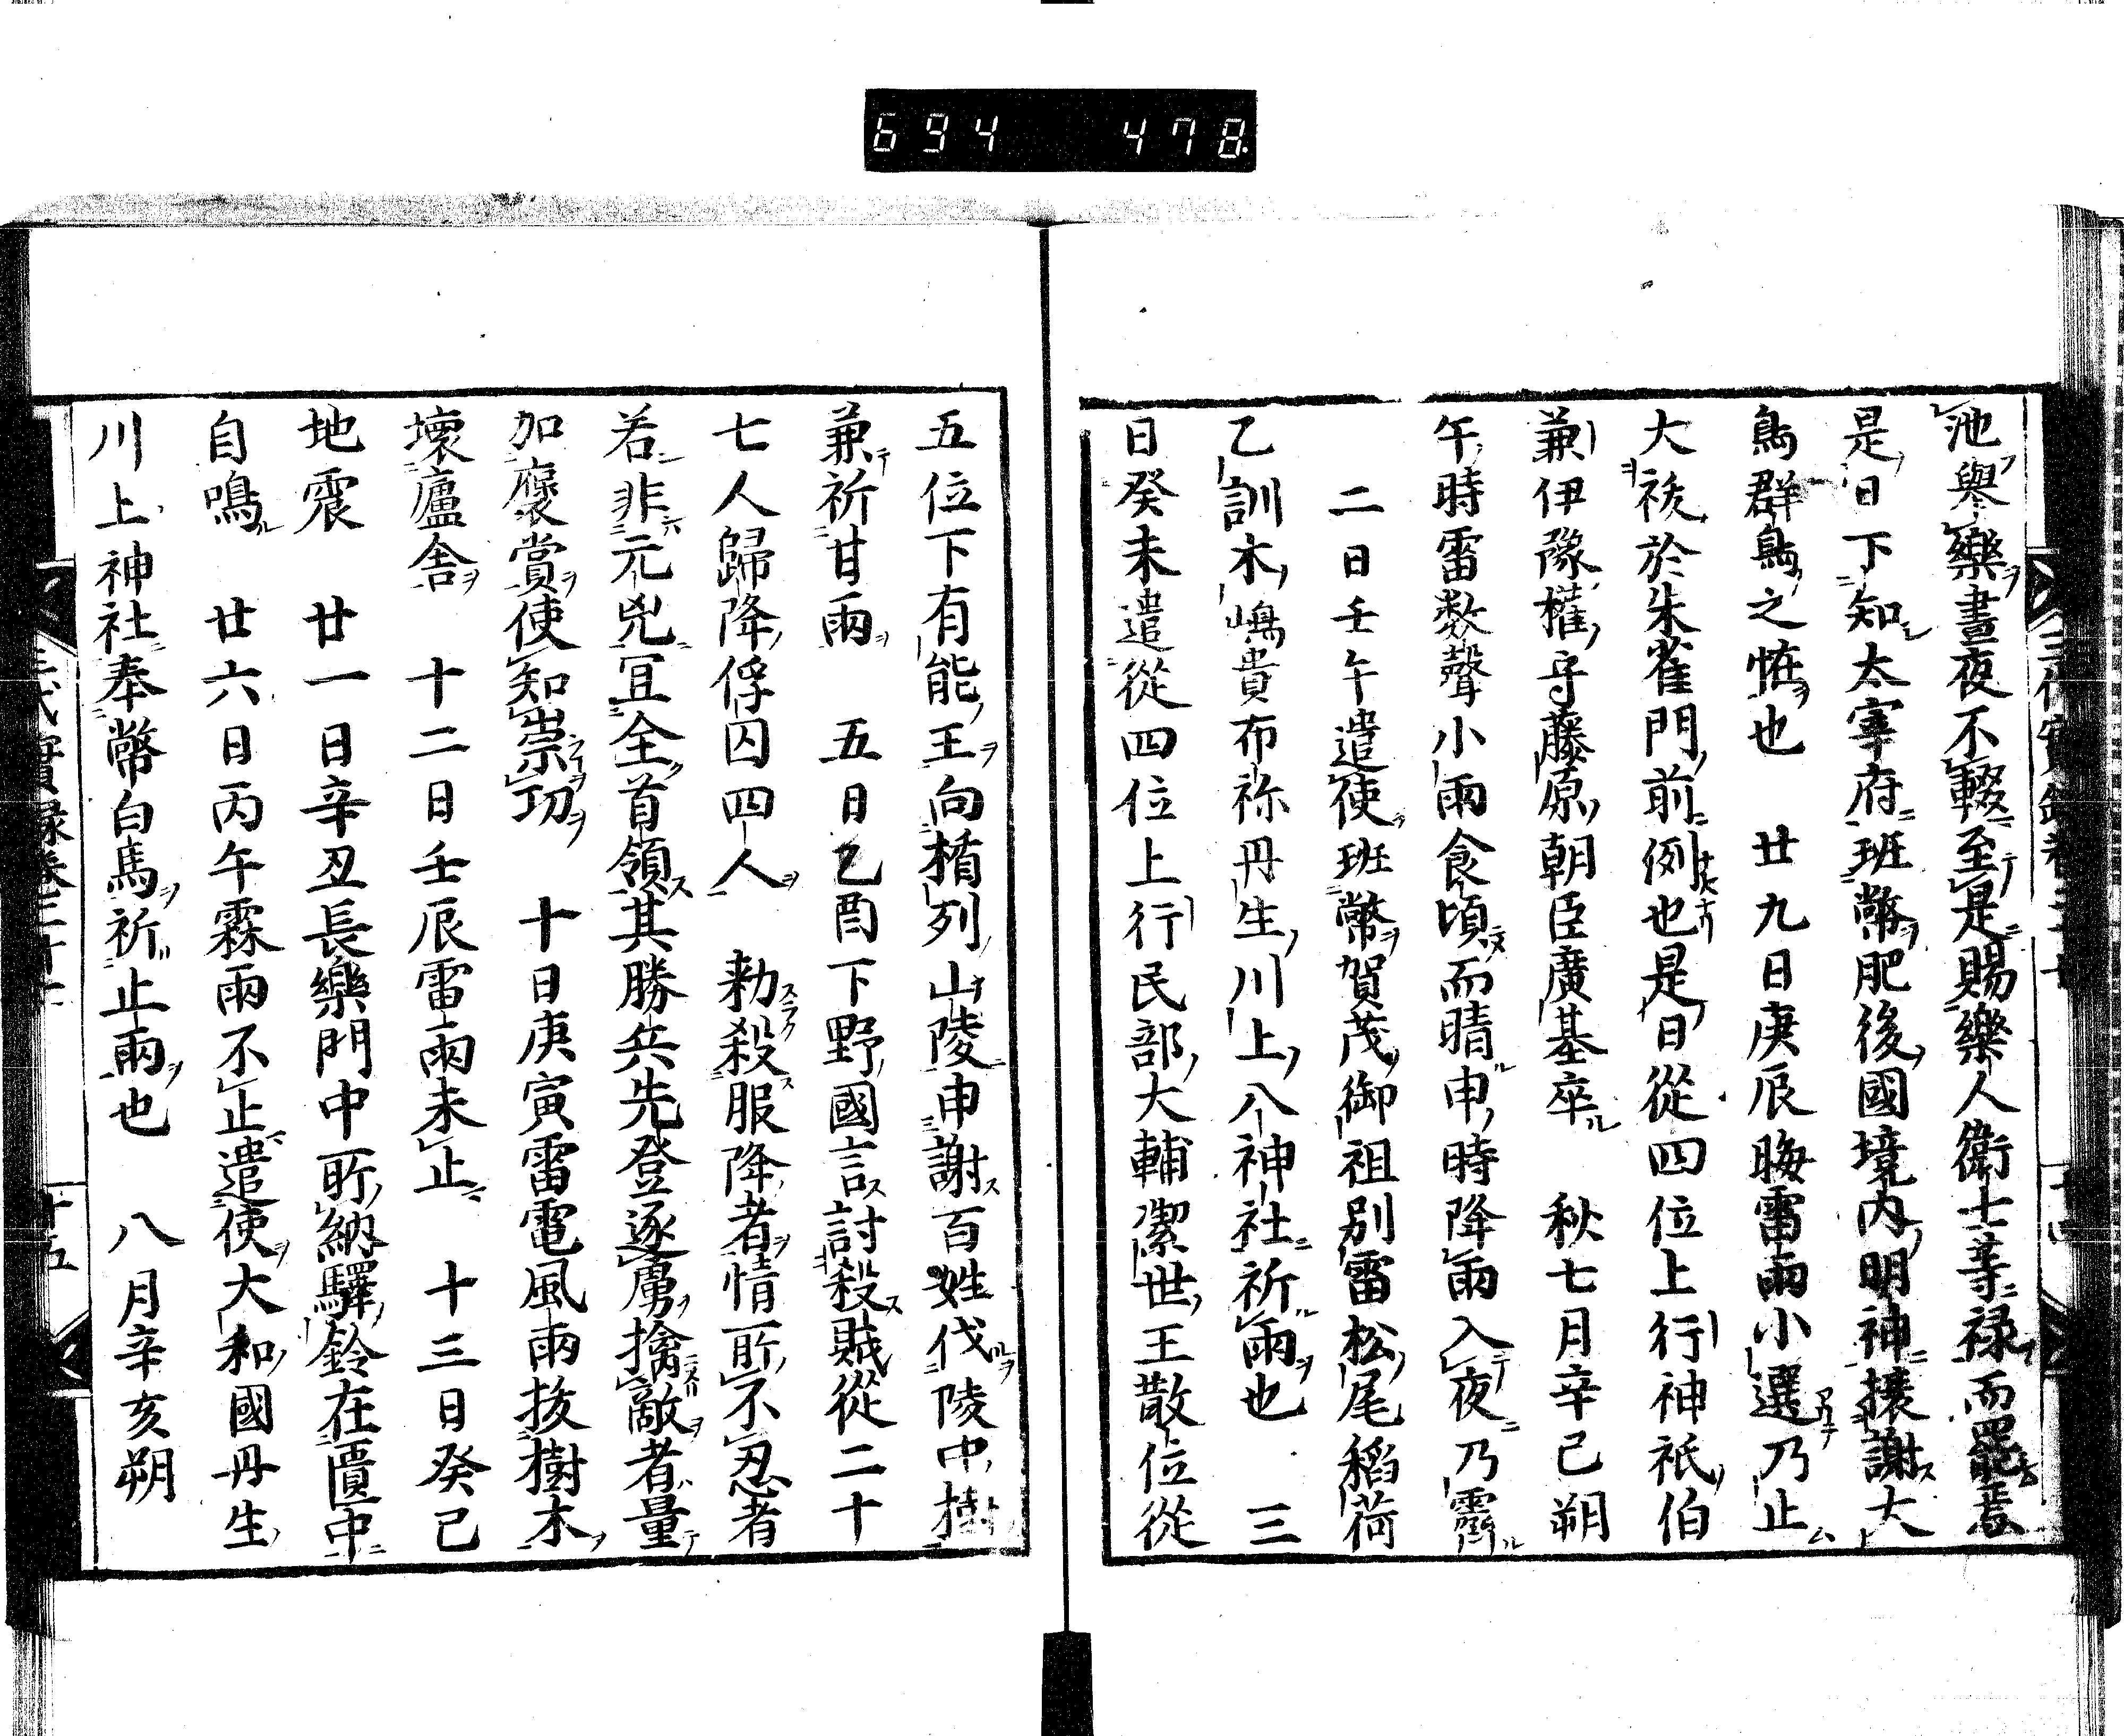 694 478
池舉樂晝夜不輟至是賜樂人衛士等祿而罷焉
是日下知太宰府班幣肥後國境内明神攘謝大
鳥群鳥之恠也 廿九日庚辰晦雷雨小選乃止
大祓於朱雀門前例也是日從四位上行神祇伯
兼伊豫權守藤原朝臣廣基卒 秋七月辛巳朔
午時雷数聲小雨食頃而晴申時降雨入夜乃霽
二日壬午遣使班幣賀茂御祖別雷松尾稻荷
乙訓木嶋貴布祢丹生川上八神社祈雨也 三
日癸未遣從四位上行民部大輔潔世王散位從
五位下有能王向楯列山陵申謝百姓伐陵中樹
兼祈甘雨 五日乙酉下野國言討殺賊從二十
七人歸降俘囚四人 勅殺服降者情所不忍者
若非元兇冝全首領其勝兵先登逐虜擒敵者量
加褒賞使知祟功 十日庚寅雷電風雨拔樹木
壞廬舍 十二日壬辰雷雨未止 十三日癸巳
地震 廿一日辛丑長樂門中所納驛鈴在匱中
自鳴 廿六日丙午霖雨不止遣使大和國丹生
川上神社奉幣白馬祈止雨也 八月辛亥朔
三代實録卷三十
十五